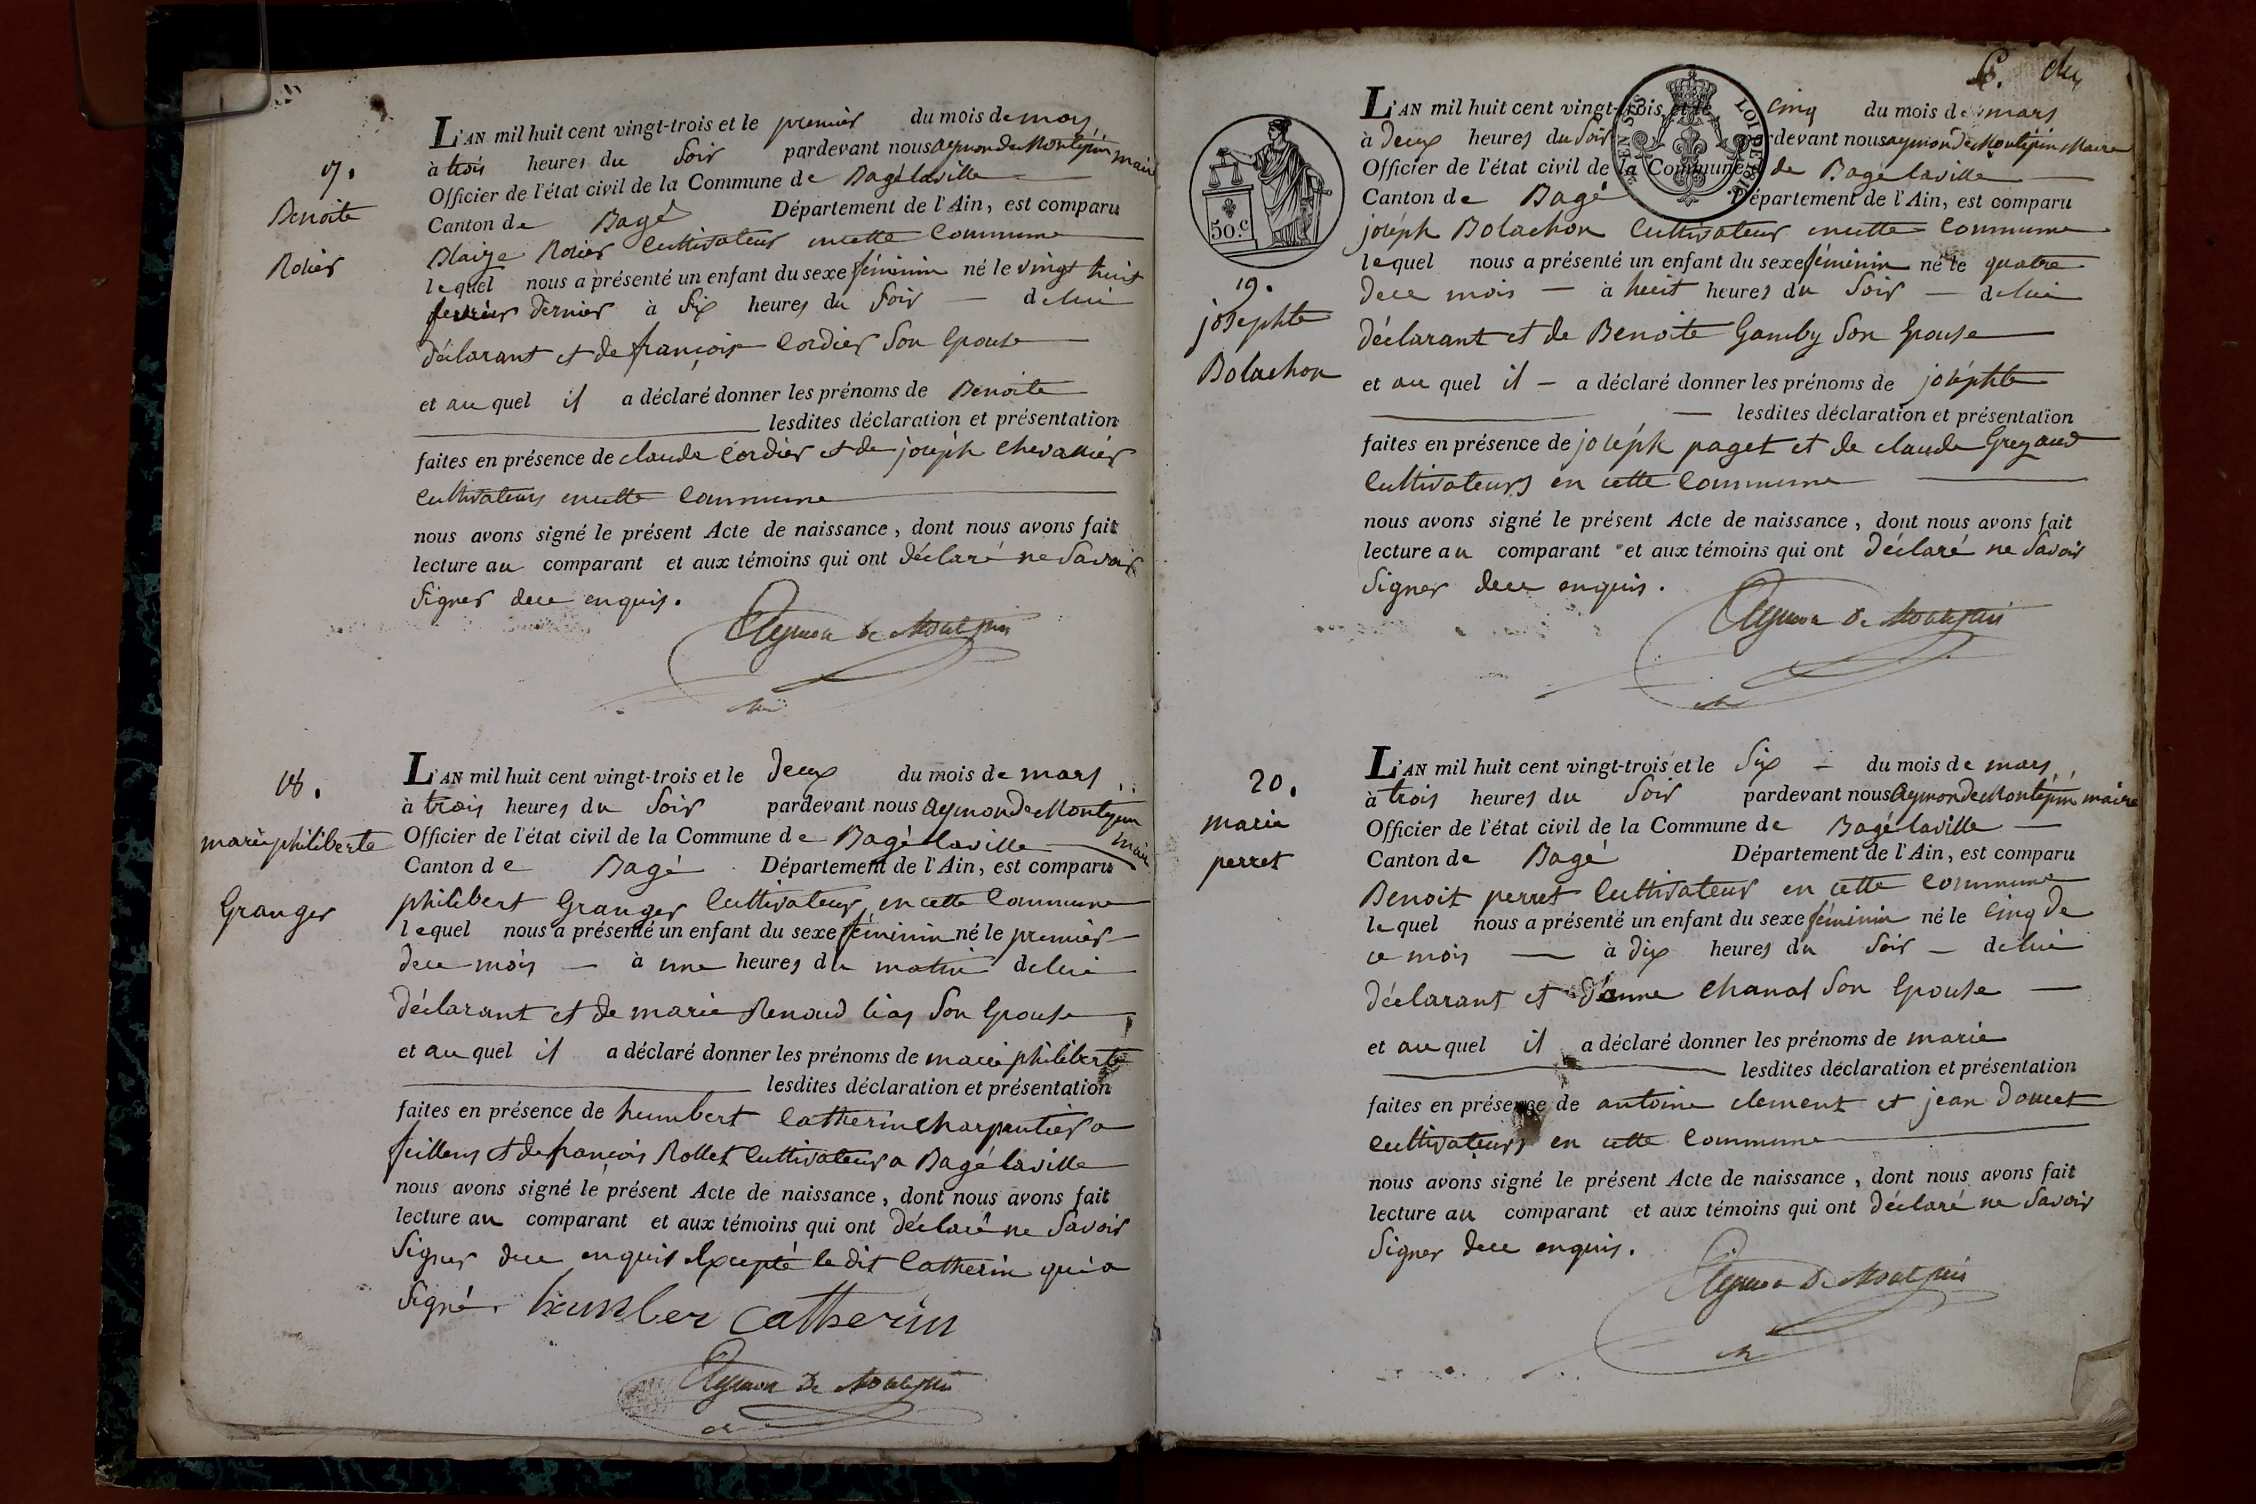 17.
Benoite
Rolier
L'AN mil huit cent vingt-trois et le premier du mois de mars
à trois heures du soir pardevant nous aymon de Montépin maire
Officier de l'état civil de la Commune de Bagé laville
Canton de Bagé Département de l'Ain, est comparu
Blaize Rolier Cultivateur en cette Commune
lequel nous a présenté un enfant du sexe féminin né le vingt huit
fevrier dernier à six heures du soir de lui
déclarant et de françoise Cordier son Epouse
et au quel il a déclaré donner les prénoms de Benoite
lesdites déclaration et présentation
faites en présence de claude Cordier et de joséph chevallier
Cultivateurs en cette Commune
nous avons signé le présent Acte de naissance, dont nous avons fait
lecture au comparant et aux témoins qui ont déclaré ne savoir
signer dece enquis.
Aymon De Montepin
18.
marie philiberte
Granger
L'AN mil huit cent vingt-trois et le deux du mois de mars
à trois heures du soir pardevant nous aymon de Montepin
maire
Officier de l'état civil de la Commune de Bagé laville
Canton de Bagé Département de l'Ain, est comparu
philibert Granger Cultivateur en cette Commune
lequel nous a présenté un enfant du sexe féminin né le premier
dece mois à une heures du matin de lui
déclarant et de marie Renoud lias son Epouse
et au quel il a déclaré donner les prénoms de marie philiberte
lesdites déclaration et présentation
faites en présence de humbert Catherin charpentier a
feillens et de françois Rollet Cultivateur a Bagé laville
nous avons signé le présent Acte de naissance, dont nous avons fait
lecture au comparant et aux témoins qui ont déclaré ne savoir
signer dece enquis Excepté le dit Catherin qui a
signé. humber catherin
Aymon De Montepin
50.c
LOI DE 1816
19.
josephte
Bolachon
L'AN mil huit cent vingt-trois et le cinq du mois de mars
à deux heures du soir pardevant nous aymon de Montépin Maire
Officier de l'état civil de la Commune de Bagé laville
Canton de Bagé Département de l'Ain, est comparu
joséph Bolachon Cultivateur en cette Commune
lequel nous a présenté un enfant du sexe féminin né le quatre
dece mois à huit heures du soir de lui
déclarant et de Benoite Gamby son Epouse
et au quel il a déclaré donner les prénoms de joséphte
lesdites déclaration et présentation
faites en présence de joséph paget et de claude Greyaud
Cultivateurs en cette Commune
nous avons signé le présent Acte de naissance, dont nous avons fait
lecture au comparant et aux témoins qui ont déclaré ne savoir
signer dece enquis.
Aymon De Montepin
20.
marie
perret
L'AN mil huit cent vingt-trois et le six du mois de mars
à trois heures du soir pardevant nous aymon de Montépin maire
Officier de l'état civil de la Commune de Bagé laville
Canton de Bagé Département de l'Ain, est comparu
Benoit perret Cultivateur en cette Commune
lequel nous a présenté un enfant du sexe féminin né le cinq de
ce mois à dix heures du soir de lui
déclarant et d'anne Chanal son Epouse
et au quel il a déclaré donner les prénoms de marie
lesdites déclaration et présentation
faites en présence de antoine clement et jean Doucet
Cultivateurs en cette Commune
nous avons signé le présent Acte de naissance, dont nous avons fait
lecture au comparant et aux témoins qui ont déclaré ne savoir
signer dece enquis.
Aymon De Montepin